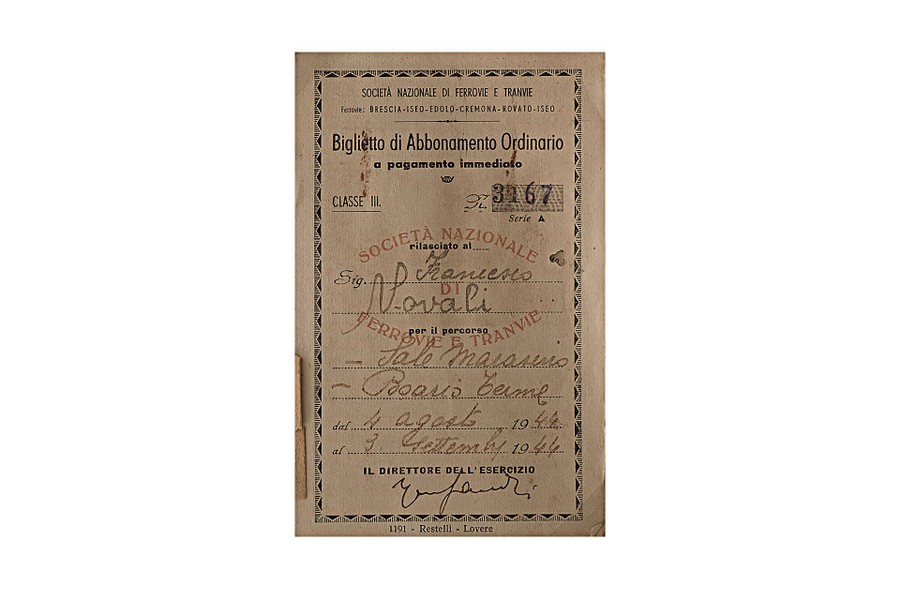 SOCIETÀ NAZIONALE DI FERROVIE E TRANVIE
Ferrovie: BRESCIA-ISEO-EDOLO-CREMONA-ROVATO-ISEO
Biglietto di Abbonamento Ordinario
a pagamento immediato
CLASSE III. N. 3167
Serie A
SOCIETÀ NAZIONALE
rilasciato al
Sig. Francesco
DI
Novali
per il percorso
FERROVIE E TRANVIE
- Sale Marasino
- Boario Terme
dal 4 agosto 1944
al 3 Settemb 1944
IL DIRETTORE DELL'ESERCIZIO
1191 - Restelli - Lovere